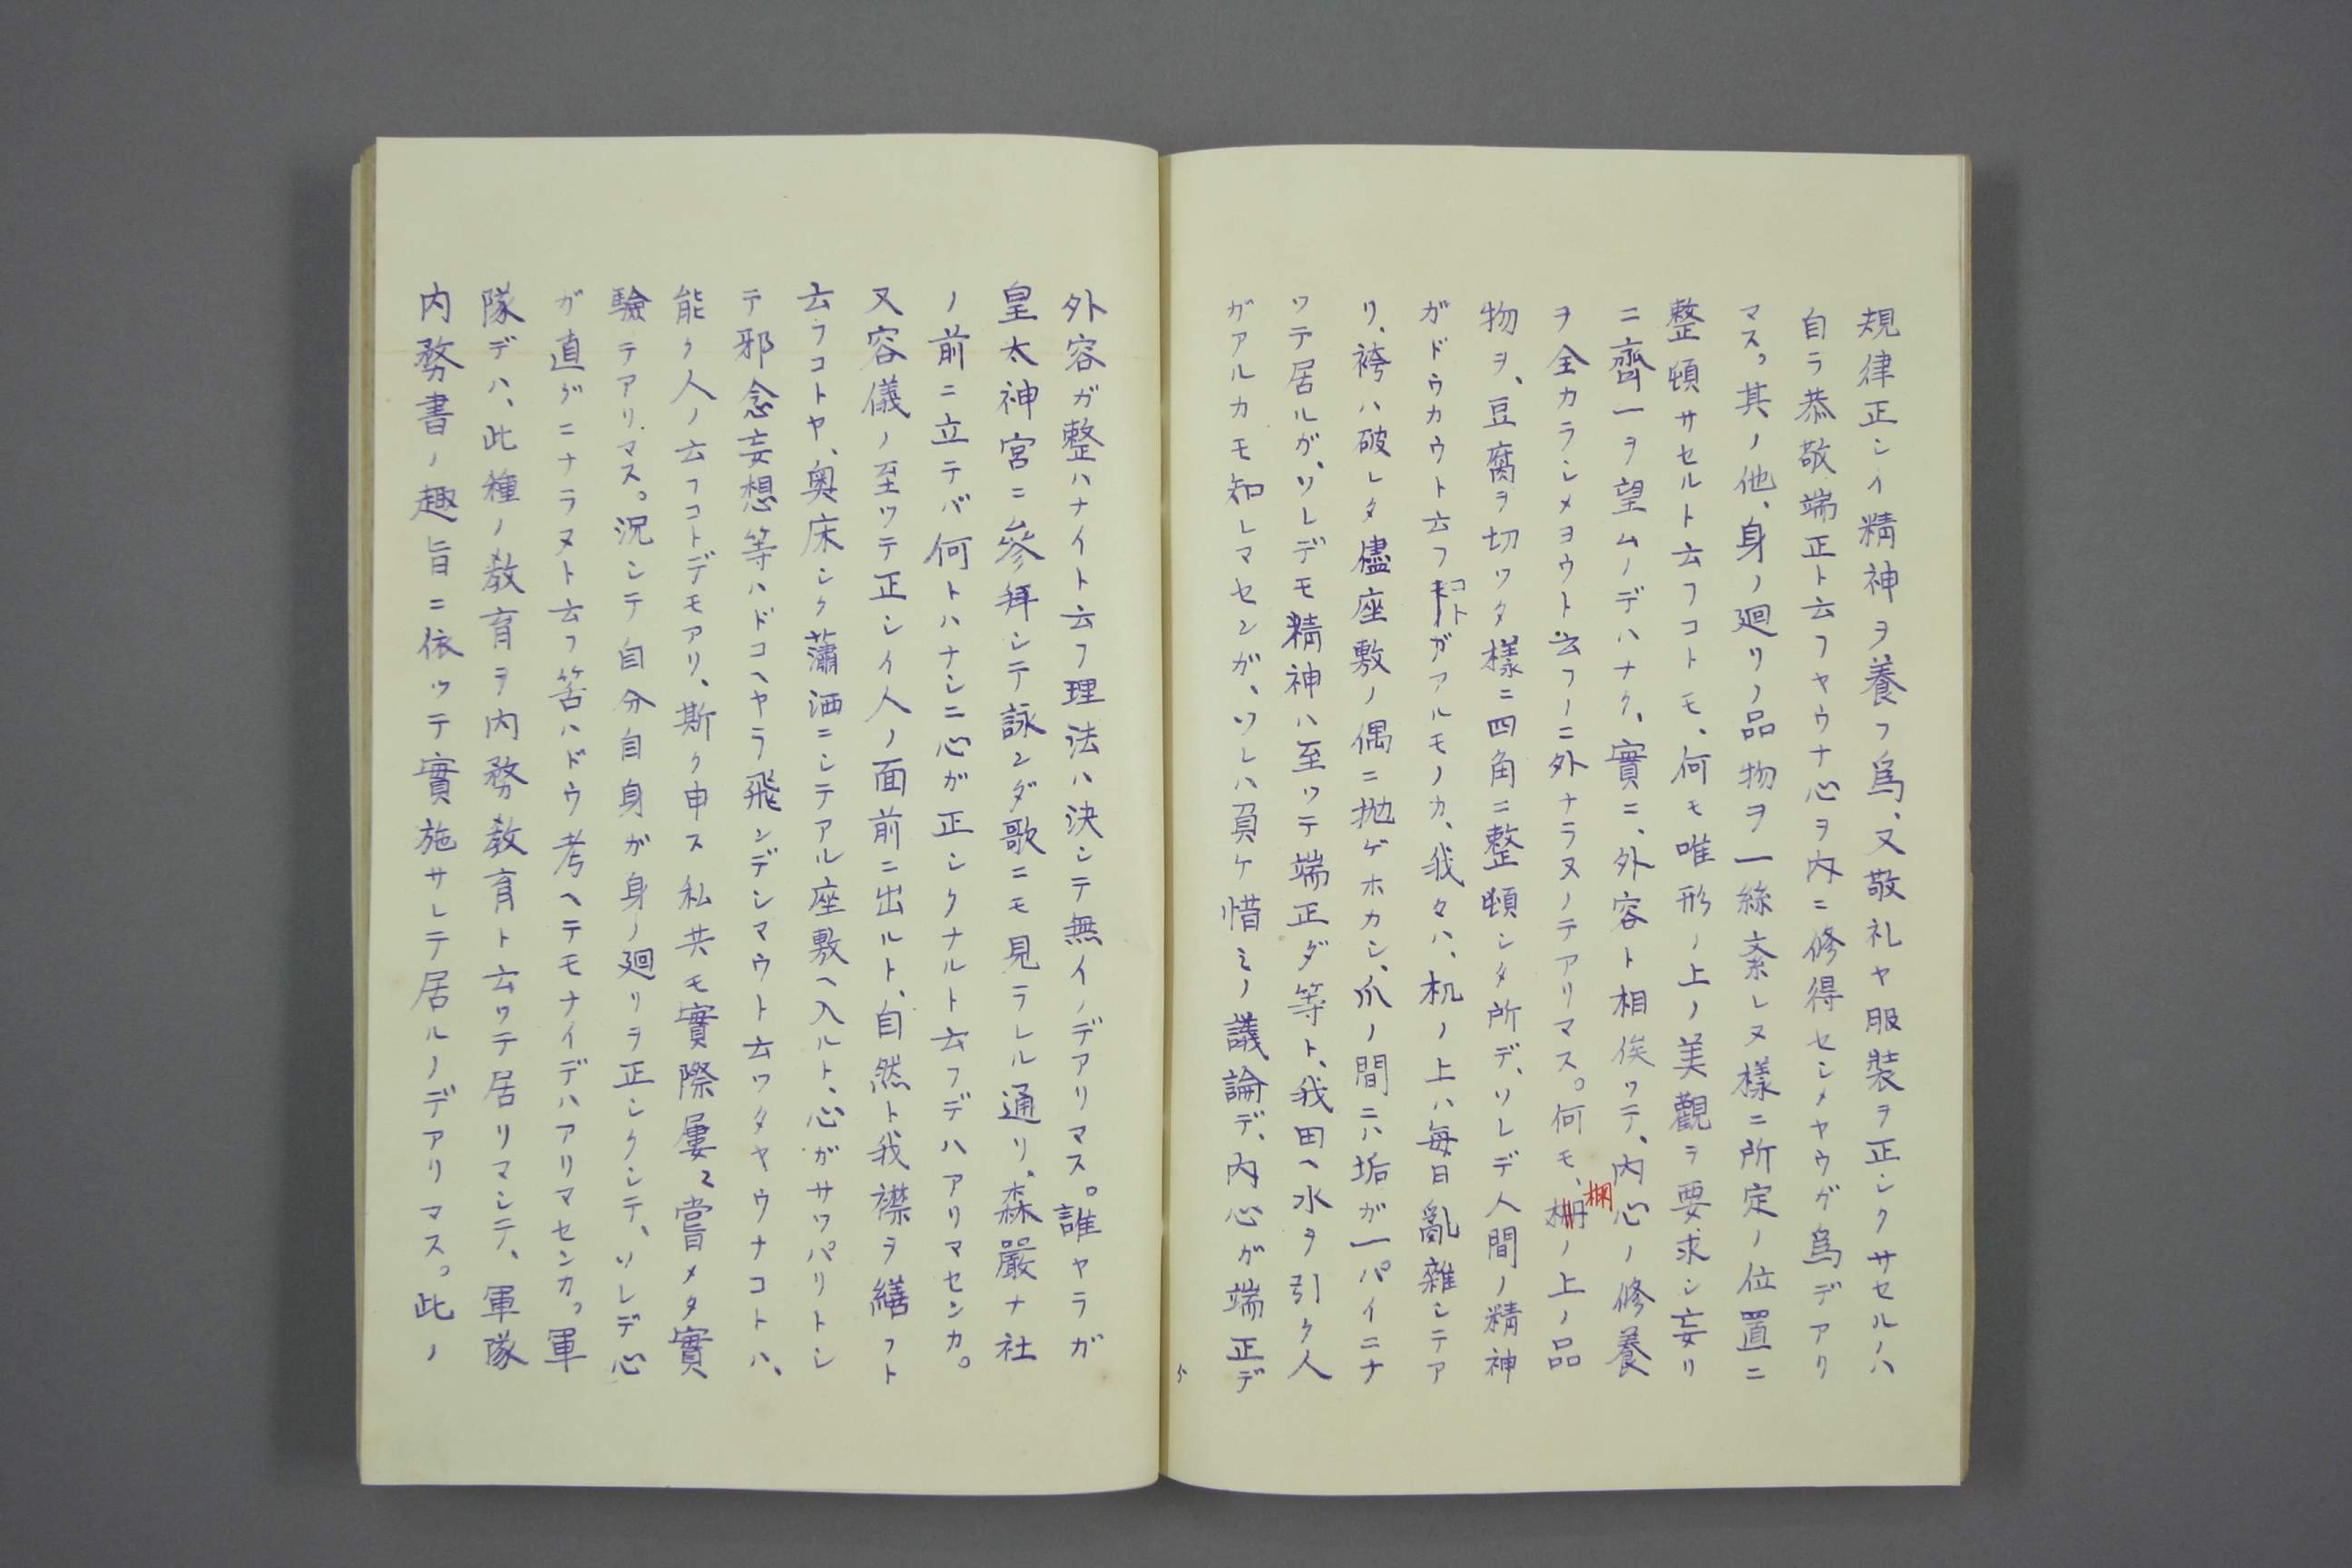 規律正シイ精神ヲ養フ爲、又敬礼ヤ服裝ヲ正シクサセルノハ
自ラ恭敬端正ト云フヤウナ心ヲ内ニ修得セシメヤウガ爲デアリ
マス。其ノ他、身ノ廻リノ品物ヲ一絲紊レヌ樣ニ所定ノ位置ニ
整頓サセルト云フコトモ、何モ唯形ノ上ノ美觀ヲ要求シ妄リ
ニ齊一ヲ望ムノデハナク、實ニ、外容ト相俟ツテ、内心ノ修養
ヲ全カラシメヨウト云フノニ外ナラヌノテアリマス。何モ、棚ノ上ノ品
物ヲ、豆腐ヲ切ツタ樣ニ四角ニ整頓シタ所デ、ソレデ人間ノ精神
ガドウカウト云フコトガアルモノカ、我々ハ、机ノ上ハ毎日亂雜シテア
リ、袴ハ破レタ儘座敷ノ偶ニ抛ゲホカシ、爪ノ間ニハ垢ガ一パイニナ
ツテ居ルガ、ソレデモ精神ハ至ツテ端正ダ等ト、我田ヘ水ヲ引ク人
ガアルカモ知レマセンガ、ソレハ負ケ惜ミノ議論デ、内心ガ端正デ
外容ガ整ハナイト云フ理法ハ決シテ無イノデアリマス。誰ヤラガ
皇太神宮ニ參拜シテ詠ンダ歌ニモ見ラレル通リ、森嚴ナ社
ノ前ニ立テバ何トハナシニ心ガ正シクナルト云フデハアリマセンカ。
又容儀ノ至ツテ正シイ人ノ面前ニ出ルト、自然ト我襟ヲ繕フト
云フコトヤ、奥床シク蕭洒ニシテアル座敷ヘ入ルト、心ガサツパリトシ
テ邪念妄想等ハドコヘヤラ飛ンデシマウト云ツタヤウナコトハ、
能ク人ノ云フコトデモアリ、斯ク申ス私共モ實際屢〻嘗メタ實
驗テアリマス。況シテ自分自身ガ身ノ廻リヲ正シクシテ、ソレデ心
ガ直グニナラヌト云フ筈ハドウ考ヘテモナイデハアリマセンカ。軍
隊デハ、此種ノ教育ヲ内務教育ト云ツテ居リマシテ、軍隊
内務書ノ趣旨ニ依ツテ實施サレテ居ルノデアリマス。此ノ